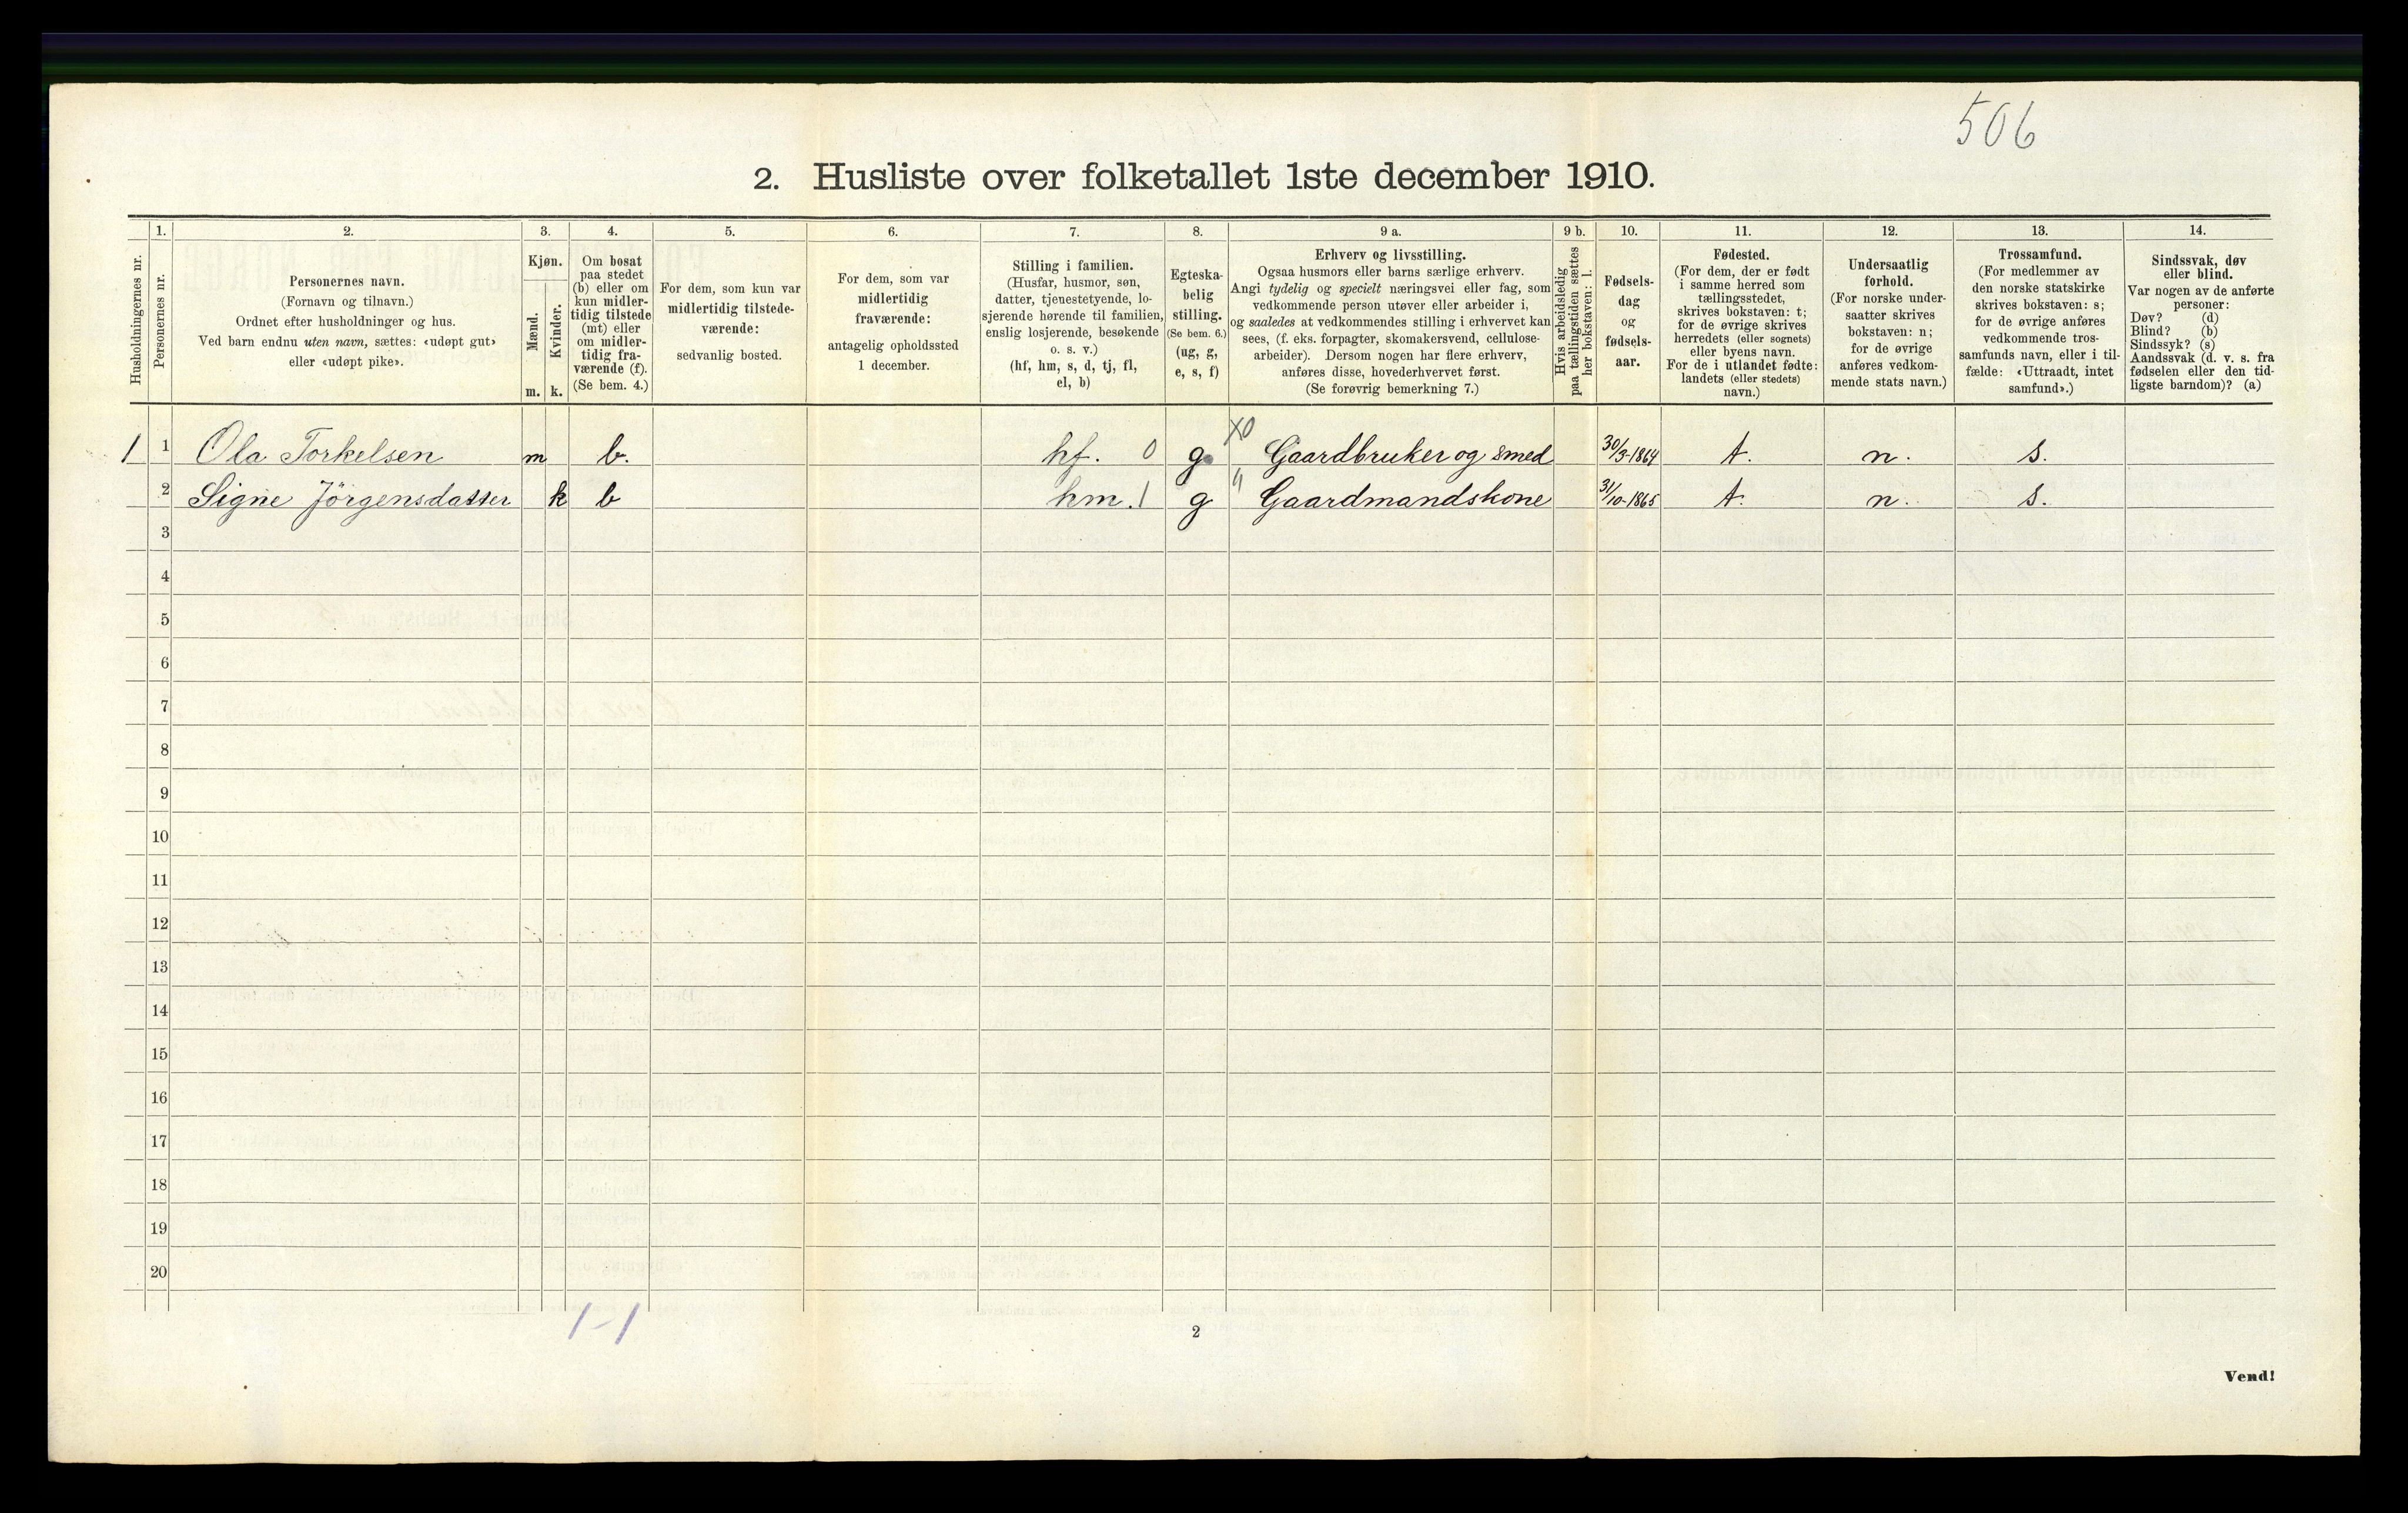 506
2. Husliste over folketallet 1ste december 1910.
Husholdningernes nr.
1.
Personernes nr.
2.
Personernes navn.
(Fornavn og tilnavn.)
Ordnet efter husholdninger og hus.
Ved barn endnu uten navn, sættes: «udøpt gut»
eller «udøpt pike».
3.
Kjøn.
Mænd.
Kvinder.
m. k.
4.
Om bosat
paa stedet
(b) eller om
kun midler-
tidig tilstede
(mt) eller
om midler-
tidig fra-
værende (f).
(Se bem. 4.)
5.
For dem, som kun var
midlertidig tilstede-
værende:
sedvanlig bosted.
6.
For dem, som var
midlertidig
fraværende:
antagelig opholdssted
1 december.
7.
Stilling i familien.
(Husfar, husmor, søn,
datter, tjenestetyende, lo-
sjerende hørende til familien,
enslig losjerende, besøkende
o. s. v.)
(hf, hm, s, d, tj, fl,
el, b)
8.
Egteska-
belig
stilling.
(Se bem. 6.)
(ug, g,
e, s, f)
9 a.
Erhverv og livsstilling.
Ogsaa husmors eller barns særlige erhverv.
Angi tydelig og specielt næringsvei eller fag, som
vedkommende person utøver eller arbeider i,
og saaledes at vedkommendes stilling i erhvervet kan
sees, (f. eks. forpagter, skomakersvend, cellulose-
arbeider). Dersom nogen har flere erhverv,
anføres disse, hovederhvervet først.
(Se forøvrig bemerkning 7.)
9 b.
Hvis arbeidsledig
paa tællingstiden sættes
her bokstaven: l.
10.
Fødsels-
dag
og
fødsels-
aar.
11.
Fødested.
(For dem, der er født
i samme herred som
tællingsstedet,
skrives bokstaven: t;
for de øvrige skrives
herredets (eller sognets)
eller byens navn.
For de i utlandet fødte:
landets (eller stedets)
navn.)
12.
Undersaatlig
forhold.
(For norske under-
saatter skrives
bokstaven: n;
for de øvrige
anføres vedkom-
mende stats navn.)
13.
Trossamfund.
(For medlemmer av
den norske statskirke
skrives bokstaven: s;
for de øvrige anføres
vedkommende tros-
samfunds navn, eller i til-
fælde: «Uttraadt, intet
samfund».)
14.
Sindssvak, døv
eller blind.
Var nogen av de anførte
personer:
Døv? (d)
Blind? (b)
Sindssyk? (s)
Aandssvak (d. v. s. fra
fødselen eller den tid-
ligste barndom)? (a)
1 1 Ola Torkelsen m b. hf. 0 g. X0 Gaardbruker og smed 30/3-1864 t. n. s.
2 Signe Jörgensdatter k b hm. 1 g " Gaardmandskone 31/10-1865 t. n. s.
3
4
5
6
7
8
9
10
11
12
13
14
15
16
17
18
19
20
1-1
2
Vend!